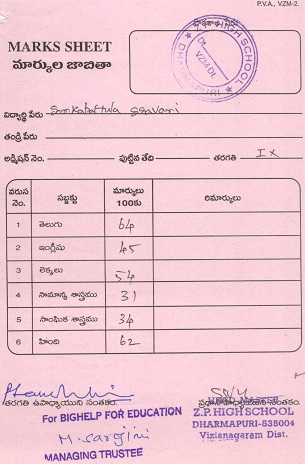 P.V.A., VZM-2.
MARKS SHEET
మార్కుల జాబితా
Z.P. HIGH SCHOOL
Dt.
VZM.Dt.
DHARMAPURI
విద్యార్థి పేరు Sravani
తండ్రి పేరు
అడ్మిషన్ నెం. పుట్టిన తేది తరగతి IX
వరుస నెం. సబ్జక్టు మార్కులు 100కు రిమార్కులు
1 తెలుగు 64
2 ఇంగ్లీషు 45
3 లెక్కలు 54
4 సామాన్య శాస్త్రము 31
5 సాంఘిక శాస్త్రము 34
6 హింది 62
తరగతి ఉపాధ్యాయుని సంతకం.
ప్రధానోపాధ్యాయుని సంతకం.
HEAD MASTER
For BIGHELP FOR EDUCATION
Z.P. HIGH SCHOOL
DHARMAPURI-535004
Vizianagaram Dist.
M. Sarojini
MANAGING TRUSTEE